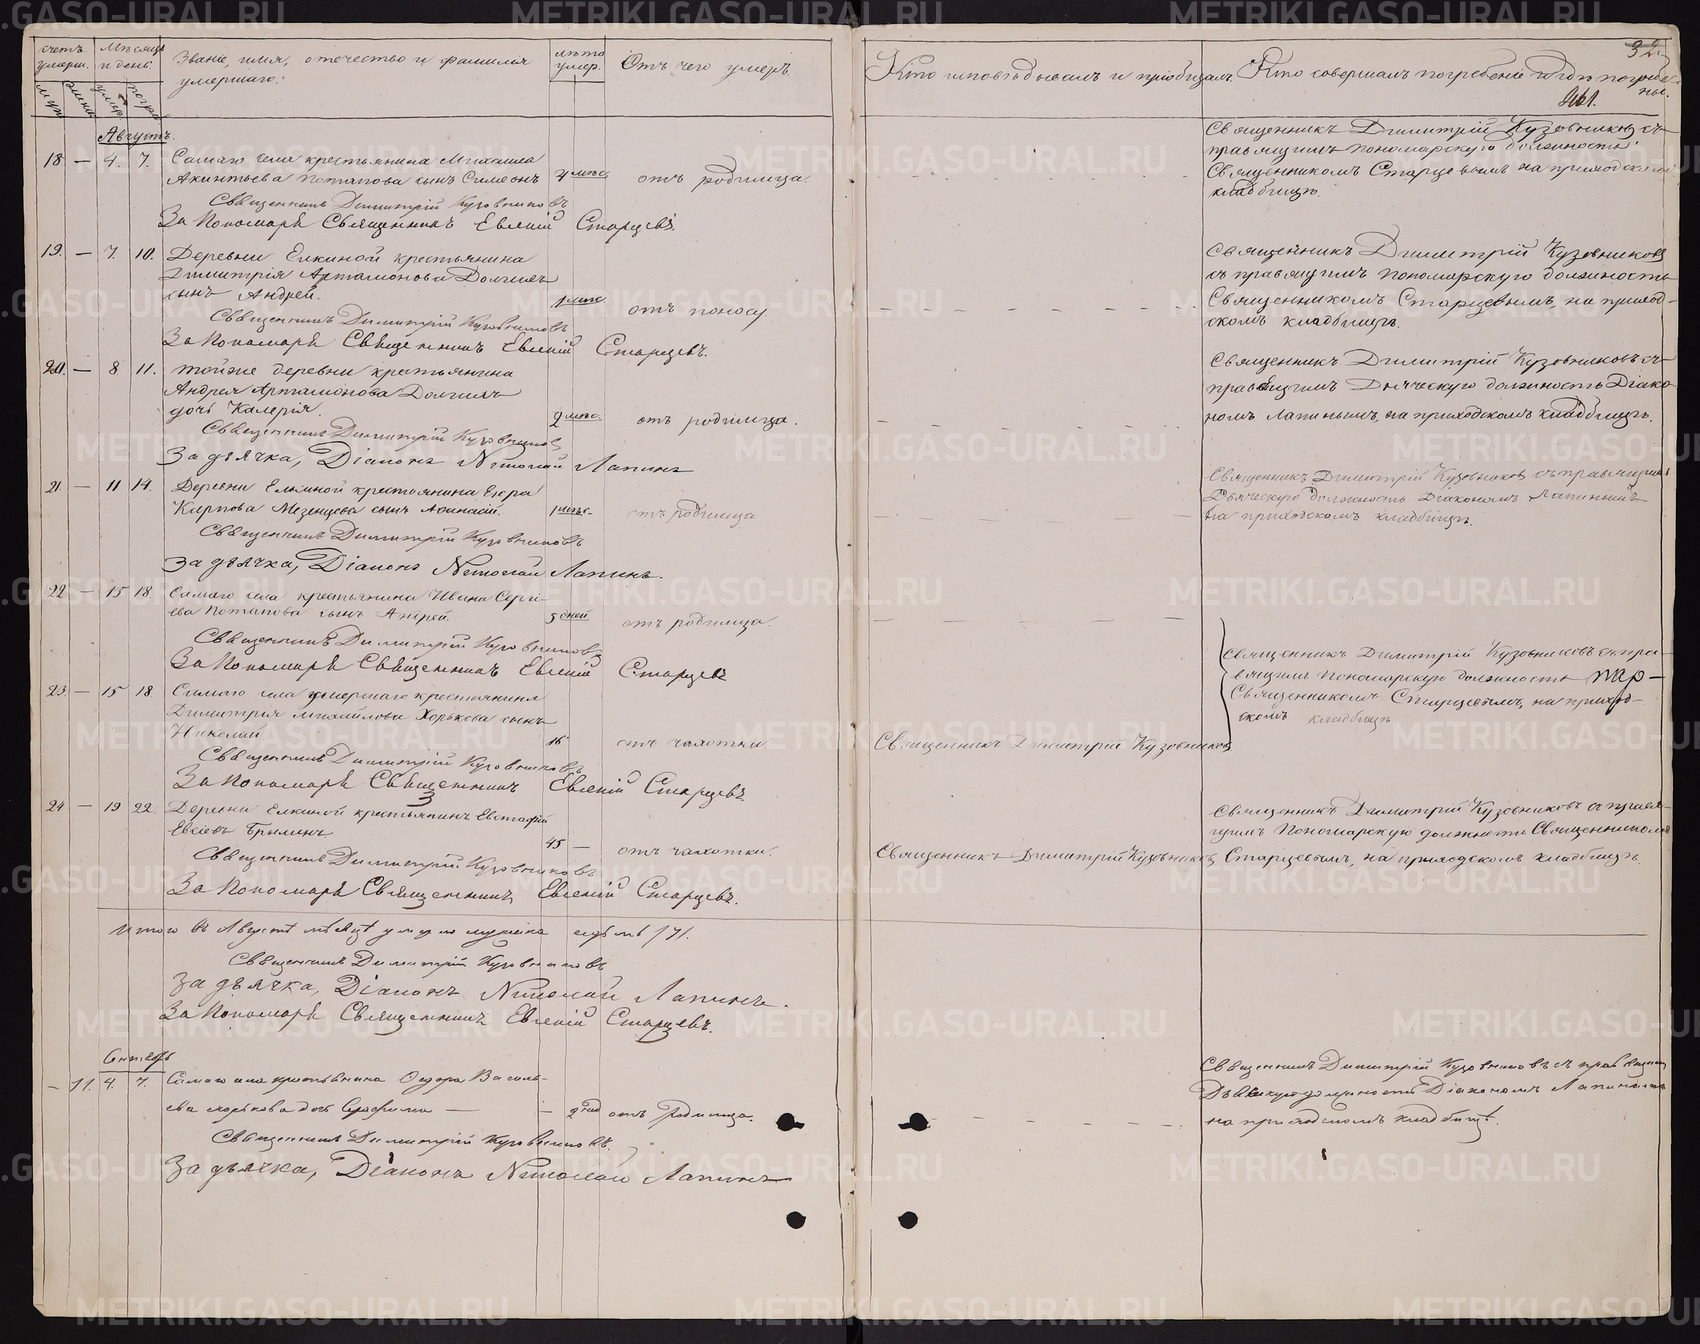 счетъ умерш.
Мѣсяцъ и день
Званіе, имя, отечество и фамилія
умершаго.
лѣто умер.
Отъ чего умеръ
Кто исповѣдывалъ и пріобщалъ
Кто совершалъ погребеніе и гдѣ погребены.
32
461.
Августъ.
18 — 4. 7. Самаго села крестьянина Михаила
Акинтьева Потапова сынъ Симеонъ 4 мѣс. отъ родимца.
Священникъ Димитрій Кузовниковъ
За Пономаря Священникъ Евгеній Старцевъ.
Священникъ Димитрій Кузовниковъ съ
правящимъ пономарскую должность
Священникомъ Старцевымъ на приходскомъ
кладбищѣ.
19. — 7. 10. Деревни Елкиной крестьянина
Димитрія Артамонова Долгихъ
сынъ Андрей. 1 мѣс. отъ поносу
Священникъ Димитрій Кузовниковъ
За Пономаря Священникъ Евгеній Старцевъ.
Священникъ Димитрій Кузовниковъ
съ правящимъ пономарскую должность
Священникомъ Старцевымъ, на приход-
скомъ кладбищѣ.
20. — 8 11. тойже деревни крестьянина
Андрея Артамонова Долгихъ
дочь Калерія. 2 мѣс. отъ родимца.
Священникъ Димитрій Кузовниковъ
За дьячка, Діаконъ Николай Лапинъ
Священникъ Димитрій Кузовниковъ съ
правящимъ Дьяческую должность Діако-
номъ Лапинымъ, на приходскомъ кладбищѣ.
21 — 11 14. Деревни Елкиной крестьянина Егора
Карпова Мезенцева сынъ Афанасій. 1 мѣс. отъ родимца
Священникъ Димитрій Кузовниковъ
За дьячка, Діаконъ Николай Лапинъ.
Священникъ Димитрій Кузовниковъ съ правящимъ
Дьяческую должность Діакономъ Лапинымъ
на приходскомъ кладбищѣ.
22 — 15 18. Самаго села крестьянина Ивана Серги-
ева Потапова сынъ Андрей. 5 дней отъ родимца.
Священникъ Димитрій Кузовниковъ
За Пономаря Священникъ Евгеній Старцевъ
23 — 15 18 Самаго села умершаго крестьянина
Димитрія Михайлова Хорькова сынъ
Николай 16 отъ чахотки
Священникъ Димитрій Кузовниковъ
За Пономаря Священникъ Евгеній Старцевъ
Священникъ Димитрій Кузовниковъ
Священникъ Димитрій Кузовниковъ съ пра-
вящимъ пономарскую должность
Священникомъ Старцевымъ, на приход-
скомъ кладбищѣ
24 — 19 22. Деревни Елкиной крестьянинъ Евстафій
45 — отъ чахотки.
Священникъ Димитрій Кузовниковъ
За Пономаря Священникъ Евгеній Старцевъ.
Священникъ Димитрій Кузовниковъ
Священникъ Димитрій Кузовниковъ съ правя-
щимъ Пономарскую должность Священникомъ
Старцевымъ, на приходскомъ кладбищѣ.
Итого въ Августѣ мѣсяцѣ умерло мужеска семь /7/.
Священникъ Димитрій Кузовниковъ
За дьячка, Діаконъ Николай Лапинъ.
За Пономаря Священникъ Евгеній Старцевъ.
Сентябрь
— 11. 4. 7. Самаго села крестьянина Ѳедора Василь-
ева Хорькова дочь Серафима — — 2 дней отъ Родимца.
Священникъ Димитрій Кузовниковъ.
За дьячка, Діаконъ Николай Лапинъ
Священникъ Димитрій Кузовниковъ съ правящимъ
Дьяческую должность Діакономъ Лапинымъ
на приходскомъ кладбищѣ.
METRIKI.GASO-URAL.RU